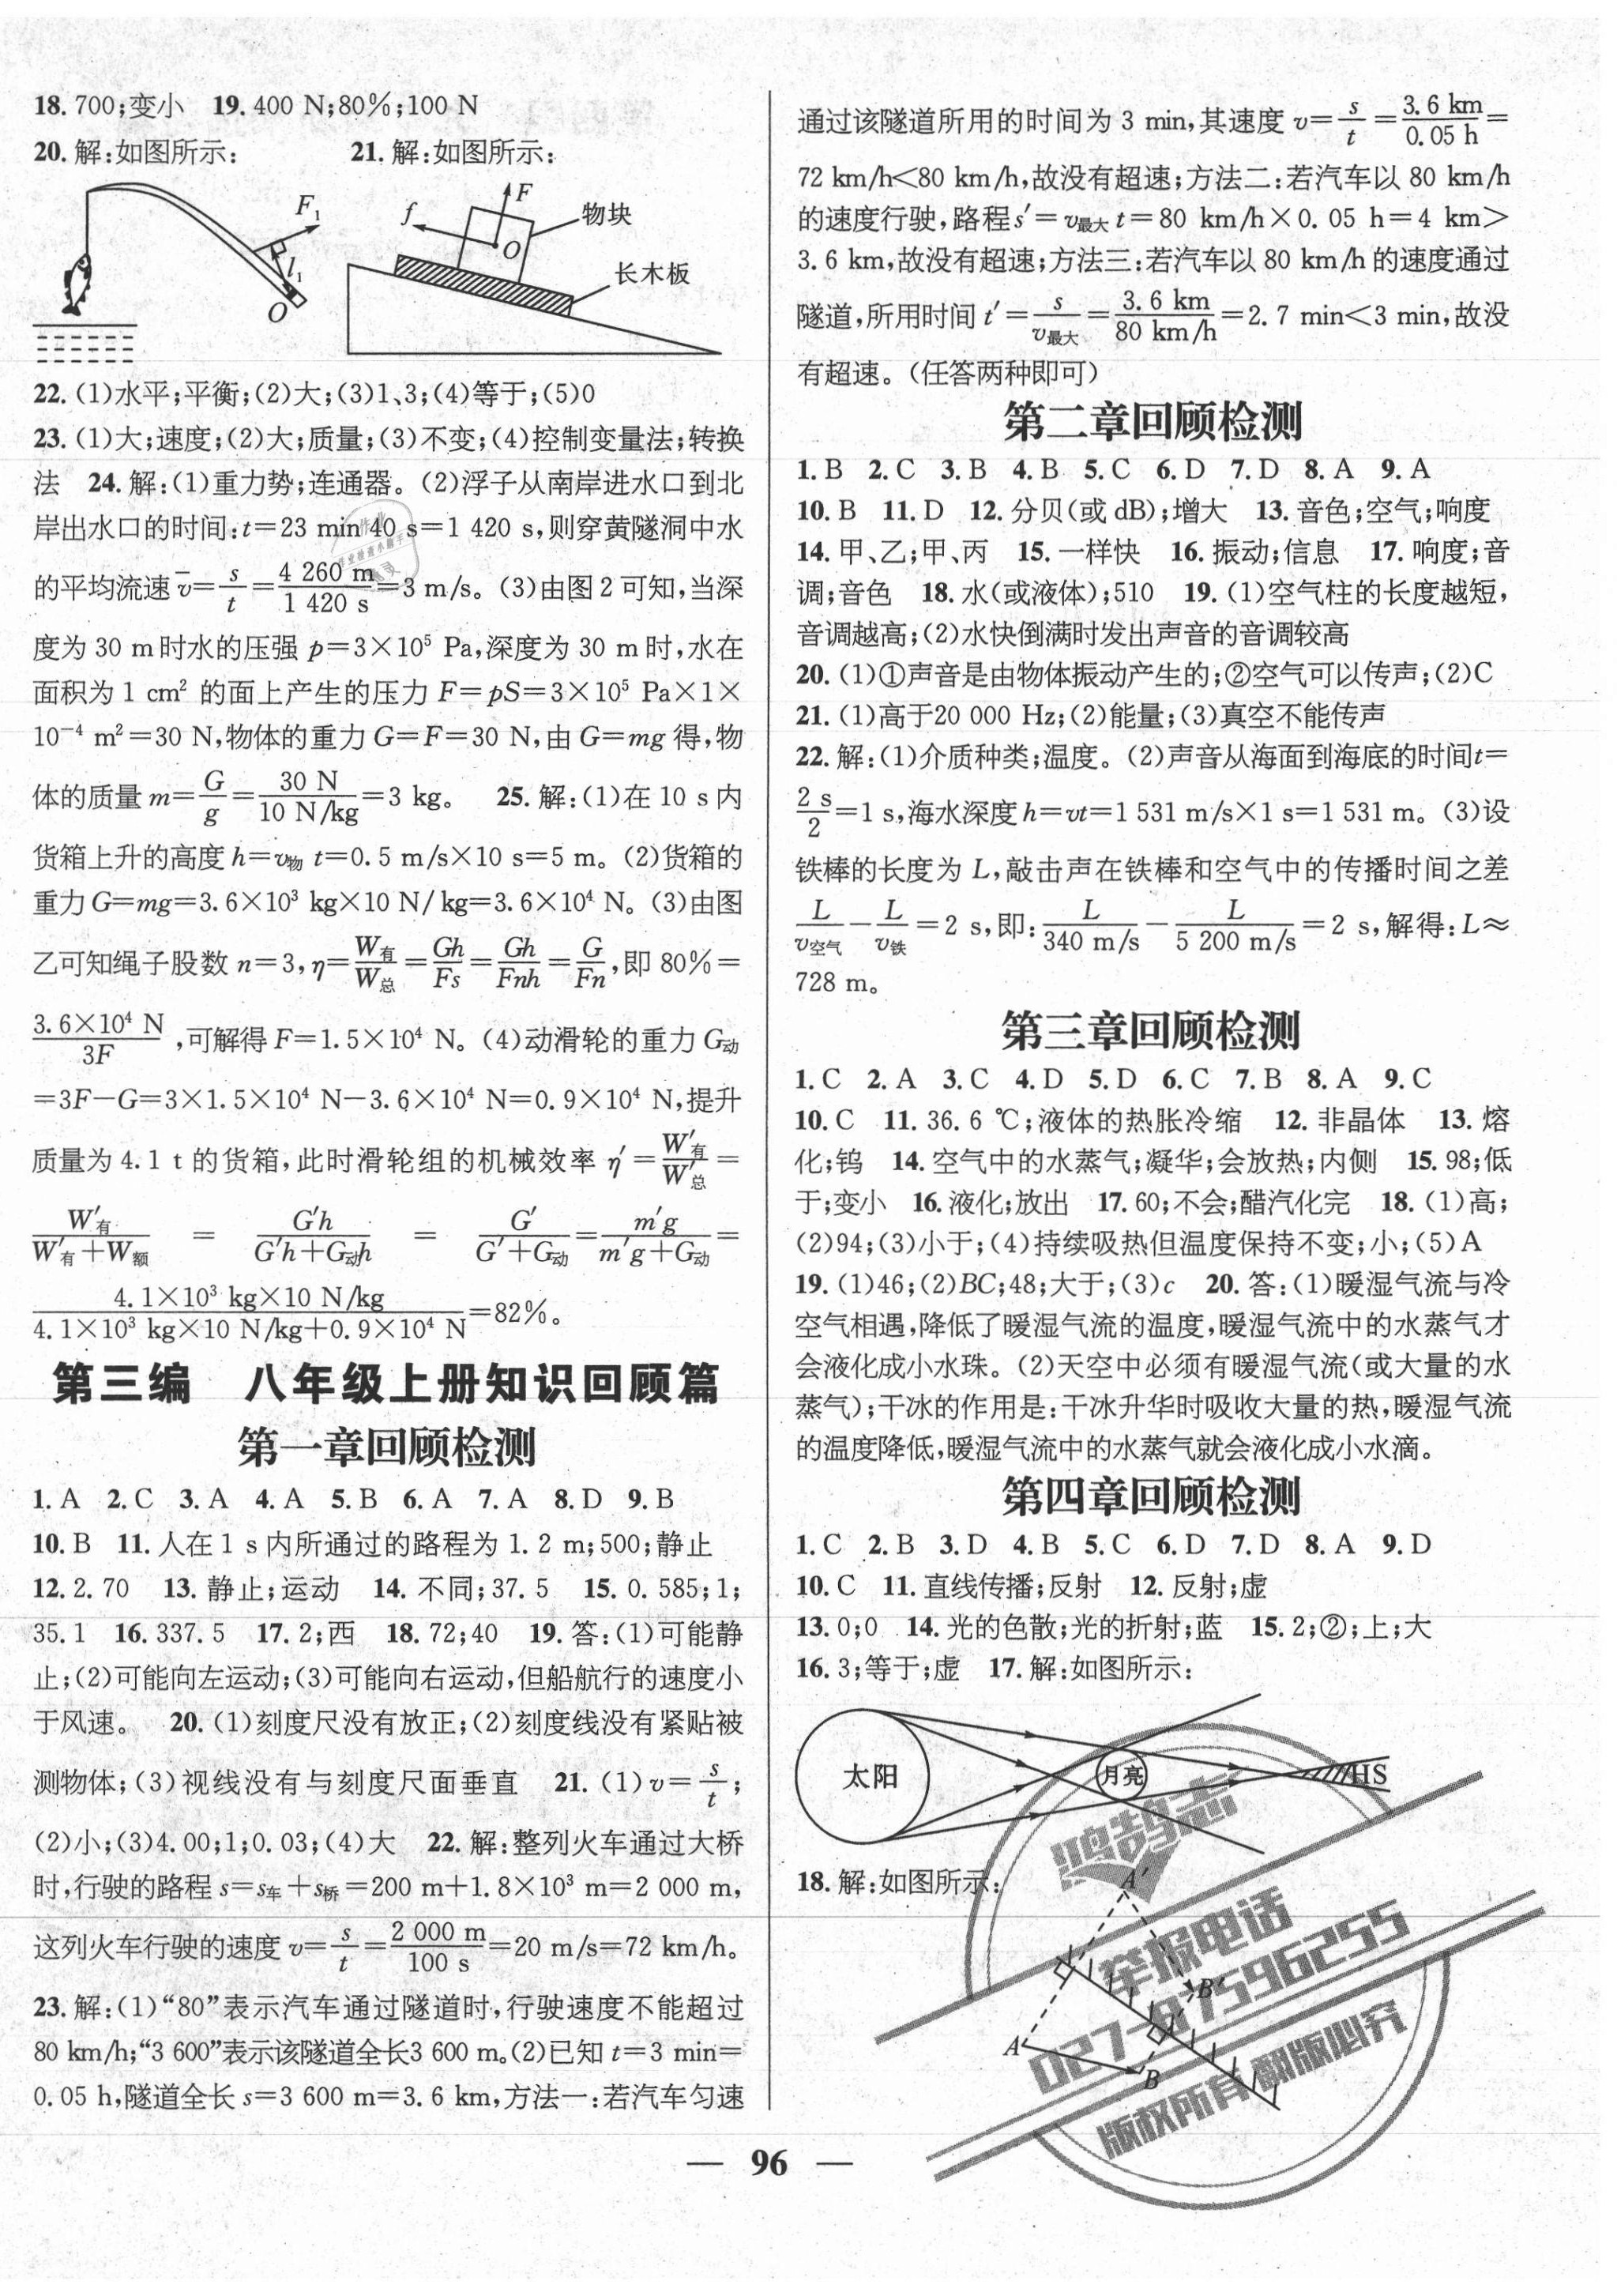 18. 700;变小 19. 400 N;80%;100 N
20. 解:如图所示: 21. 解:如图所示:
F₁
l₁
O
F
f
O
物块
长木板
22. (1)水平;平衡;(2)大;(3)1、3;(4)等于;(5)0
23. (1)大;速度;(2)大;质量;(3)不变;(4)控制变量法;转换
法 24. 解:(1)重力势;连通器。(2)浮子从南岸进水口到北
岸出水口的时间:t=23 min 40 s=1 420 s,则穿黄隧洞中水
的平均流速v̄=s/t=4 260 m/1 420 s=3 m/s。(3)由图2可知,当深
度为 30 m时水的压强 p=3×10⁵ Pa,深度为 30 m时,水在
面积为 1 cm² 的面上产生的压力 F=pS=3×10⁵ Pa×1×
10⁻⁴ m²=30 N,物体的重力G=F=30 N,由G=mg得,物
体的质量 m=G/g=30 N/10 N/kg=3 kg。 25. 解:(1)在 10 s内
货箱上升的高度h=v物 t=0.5 m/s×10 s=5 m。(2)货箱的
重力G=mg=3.6×10³ kg×10 N/kg=3.6×10⁴ N。(3)由图
乙可知绳子股数 n=3,η=W有/W总=Gh/Fs=Gh/Fnh=G/Fn,即 80%=
3.6×10⁴ N/3F,可解得F=1.5×10⁴ N。(4)动滑轮的重力G动
=3F-G=3×1.5×10⁴ N-3.6×10⁴ N=0.9×10⁴ N,提升
质量为 4.1 t 的货箱,此时滑轮组的机械效率 η′=W′有/W′总=
W′有/W′有+W额 = G′h/G′h+G动h = G′/G′+G动=m′g/m′g+G动=
4.1×10³ kg×10 N/kg/4.1×10³ kg×10 N/kg+0.9×10⁴ N=82%。
第三编 八年级上册知识回顾篇
第一章回顾检测
1. A 2. C 3. A 4. A 5. B 6. A 7. A 8. D 9. B
10. B 11. 人在 1 s内所通过的路程为 1.2 m;500;静止
12. 2.70 13. 静止;运动 14. 不同;37.5 15. 0.585;1;
35.1 16. 337.5 17. 2;西 18. 72;40 19. 答:(1)可能静
止;(2)可能向左运动;(3)可能向右运动,但船航行的速度小
于风速。 20. (1)刻度尺没有放正;(2)刻度线没有紧贴被
测物体;(3)视线没有与刻度尺面垂直 21. (1)v=s/t;
(2)小;(3)4.00;1;0.03;(4)大 22. 解:整列火车通过大桥
时,行驶的路程 s=s车+s桥=200 m+1.8×10³ m=2 000 m,
这列火车行驶的速度 v=s/t=2 000 m/100 s=20 m/s=72 km/h。
23. 解:(1)“80”表示汽车通过隧道时,行驶速度不能超过
80 km/h;“3 600”表示该隧道全长3 600 m。(2)已知 t=3 min=
0.05 h,隧道全长 s=3 600 m=3.6 km,方法一:若汽车匀速
通过该隧道所用的时间为 3 min,其速度 v=s/t=3.6 km/0.05 h=
72 km/h<80 km/h,故没有超速;方法二:若汽车以 80 km/h
的速度行驶,路程s′=v最大 t=80 km/h×0.05 h=4 km>
3.6 km,故没有超速;方法三:若汽车以 80 km/h的速度通过
隧道,所用时间 t′=s/v最大=3.6 km/80 km/h=2.7 min<3 min,故没
有超速。(任答两种即可)
第二章回顾检测
1. B 2. C 3. B 4. B 5. C 6. D 7. D 8. A 9. A
10. B 11. D 12. 分贝(或 dB);增大 13. 音色;空气;响度
14. 甲、乙;甲、丙 15. 一样快 16. 振动;信息 17. 响度;音
调;音色 18. 水(或液体);510 19. (1)空气柱的长度越短,
音调越高;(2)水快倒满时发出声音的音调较高
20. (1)①声音是由物体振动产生的;②空气可以传声;(2)C
21. (1)高于20 000 Hz;(2)能量;(3)真空不能传声
22. 解:(1)介质种类;温度。(2)声音从海面到海底的时间t=
2 s/2=1 s,海水深度h=vt=1 531 m/s×1 s=1 531 m。(3)设
铁棒的长度为 L,敲击声在铁棒和空气中的传播时间之差
L/v空气-L/v铁=2 s,即:L/340 m/s-L/5 200 m/s=2 s,解得:L≈
728 m。
第三章回顾检测
1. C 2. A 3. C 4. D 5. D 6. C 7. B 8. A 9. C
10. C 11. 36.6 ℃;液体的热胀冷缩 12. 非晶体 13. 熔
化;钨 14. 空气中的水蒸气;凝华;会放热;内侧 15. 98;低
于;变小 16. 液化;放出 17. 60;不会;醋汽化完 18. (1)高;
(2)94;(3)小于;(4)持续吸热但温度保持不变;小;(5)A
19. (1)46;(2)BC;48;大于;(3)c 20. 答:(1)暖湿气流与冷
空气相遇,降低了暖湿气流的温度,暖湿气流中的水蒸气才
会液化成小水珠。(2)天空中必须有暖湿气流(或大量的水
蒸气);干冰的作用是:干冰升华时吸收大量的热,暖湿气流
的温度降低,暖湿气流中的水蒸气就会液化成小水滴。
第四章回顾检测
1. C 2. B 3. D 4. B 5. C 6. D 7. D 8. A 9. D
10. C 11. 直线传播;反射 12. 反射;虚
13. 0;0 14. 光的色散;光的折射;蓝 15. 2;②;上;大
16. 3;等于;虚 17. 解:如图所示:
太阳
月亮
HS
18. 解:如图所示:
鸿鹄志
A′
举报电话
B′
027-87596255
A
B
版权所有 翻版必究
— 96 —